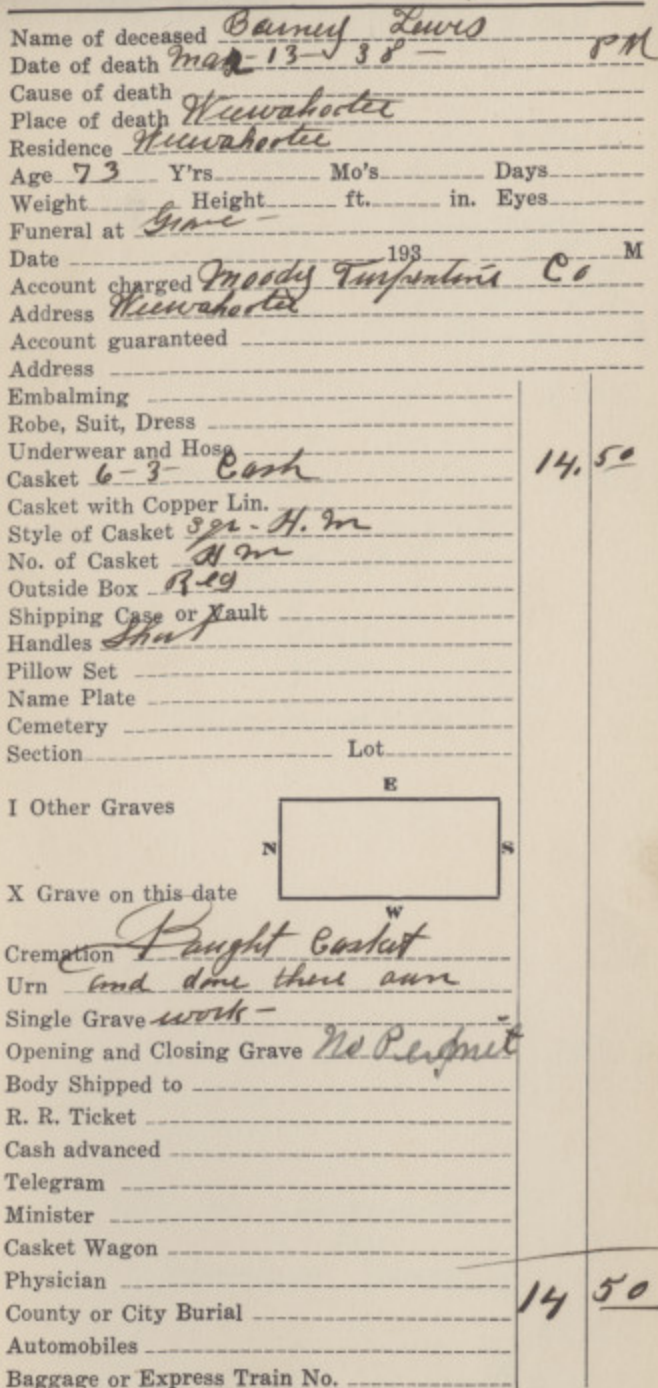 Name of deceased Barney Lewis
Date of death Mar - 13 - 38 - PM
Cause of death
Place of death Wewahootee
Residence Wewahootee
Age 73 Y'rs. Mo's. Days
Weight Height ft. in. Eyes
Funeral at Grave -
Date 193 M
Account charged Moody Turpentine Co
Address Wewahootee
Account guaranteed
Address
Embalming
Robe, Suit, Dress
Underwear and Hose
Casket 6-3- Cash 14.50
Casket with Copper Lin.
Style of Casket Sqr - H. M
No. of Casket H M
Outside Box Reg
Shipping Case or Vault
Handles Short
Pillow Set
Name Plate
Cemetery
Section Lot
E
I Other Graves
N S
X Grave on this date
W
Cremation Baught Casket
Urn and done there own
Single Grave work -
Opening and Closing Grave No Permit
Body Shipped to
R. R. Ticket
Cash advanced
Telegram
Minister
Casket Wagon
Physician 14 50
County or City Burial
Automobiles
Baggage or Express Train No.